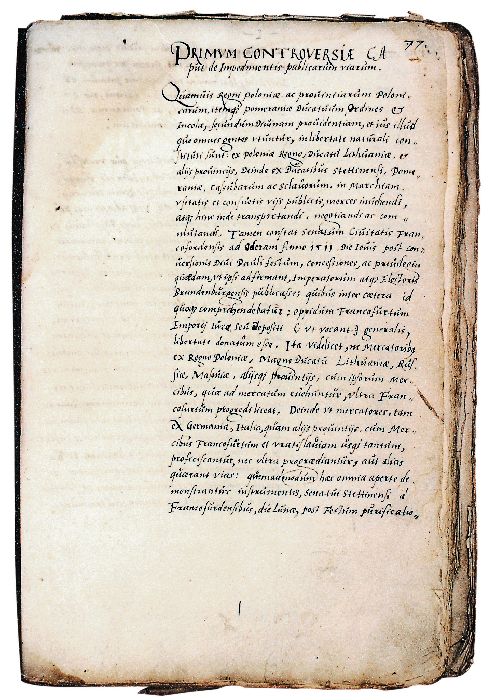 77.
PRIMVM CONTROVERSIÆ CA
put de Impedimentis publicarum viarum.
Quamuis Regni Poloniæ ac prouinciarum Poloni-
carum, itemqȝ Pomeraniæ Ducatuum Ordines et
Incolæ, secundum Diuinam prouidentiam, et ius illud
quo omnes gentes vtuntur, in libertate naturali con-
stituti sunt: ex polonia Regno, Ducatu Lithuaniæ, et
alijs prouincijs, Deinde ex Ducatibus Stettinensi, Pome-
raniæ, Cassubarum ac Sclauorum, in Marchiam,
vsitatis et consuetis vijs publicis, merces inuehendi,
atqȝ hinc inde transportandi, negotiandi ac com-
mutandi. Tamen constat Senatum Ciuitatis Fran-
cofordensis ad Oderam Anno 1511 Die Iouis post con-
uersionis Diui Pauli festum, concessiones, ac priuilegia
quædam, vt ipsi adfirmant, Imperatorum atqȝ Electoris
Brandenburgensis publicasse: quibus inter cætera id
quoqȝ comprehendebatur: oppidum Francofurtum
Emporij iuræ, seu depositi (vt vocant) generalis,
libertate donatum esse. Ita videlicet, ne Mercatoribȝ
ex Regno Poloniæ, Magno Ducatu Lithuaniæ, Rus-
siæ, Masouiæ, alijsqȝ prouincijs, cum ipsorum Mer-
cibus, quæ ad mercatum euehuntur, vltra Fran-
cofurtum progredi liceat, Deinde vt mercatores, tam
ex Germania, Italia, quam alijs prouincijs, cum Mer-
cibus Francofurtum et Vratislauiam usqȝ tantum,
proficiscantur, nec vltra progrædiantur, aut alias
quærant vias: quemadmodum hæc omnia aperte de-
monstrantur instrumentis, Senatui Stettinensi à
Francofurdensibus, die Lunæ, post Festum purificatio-